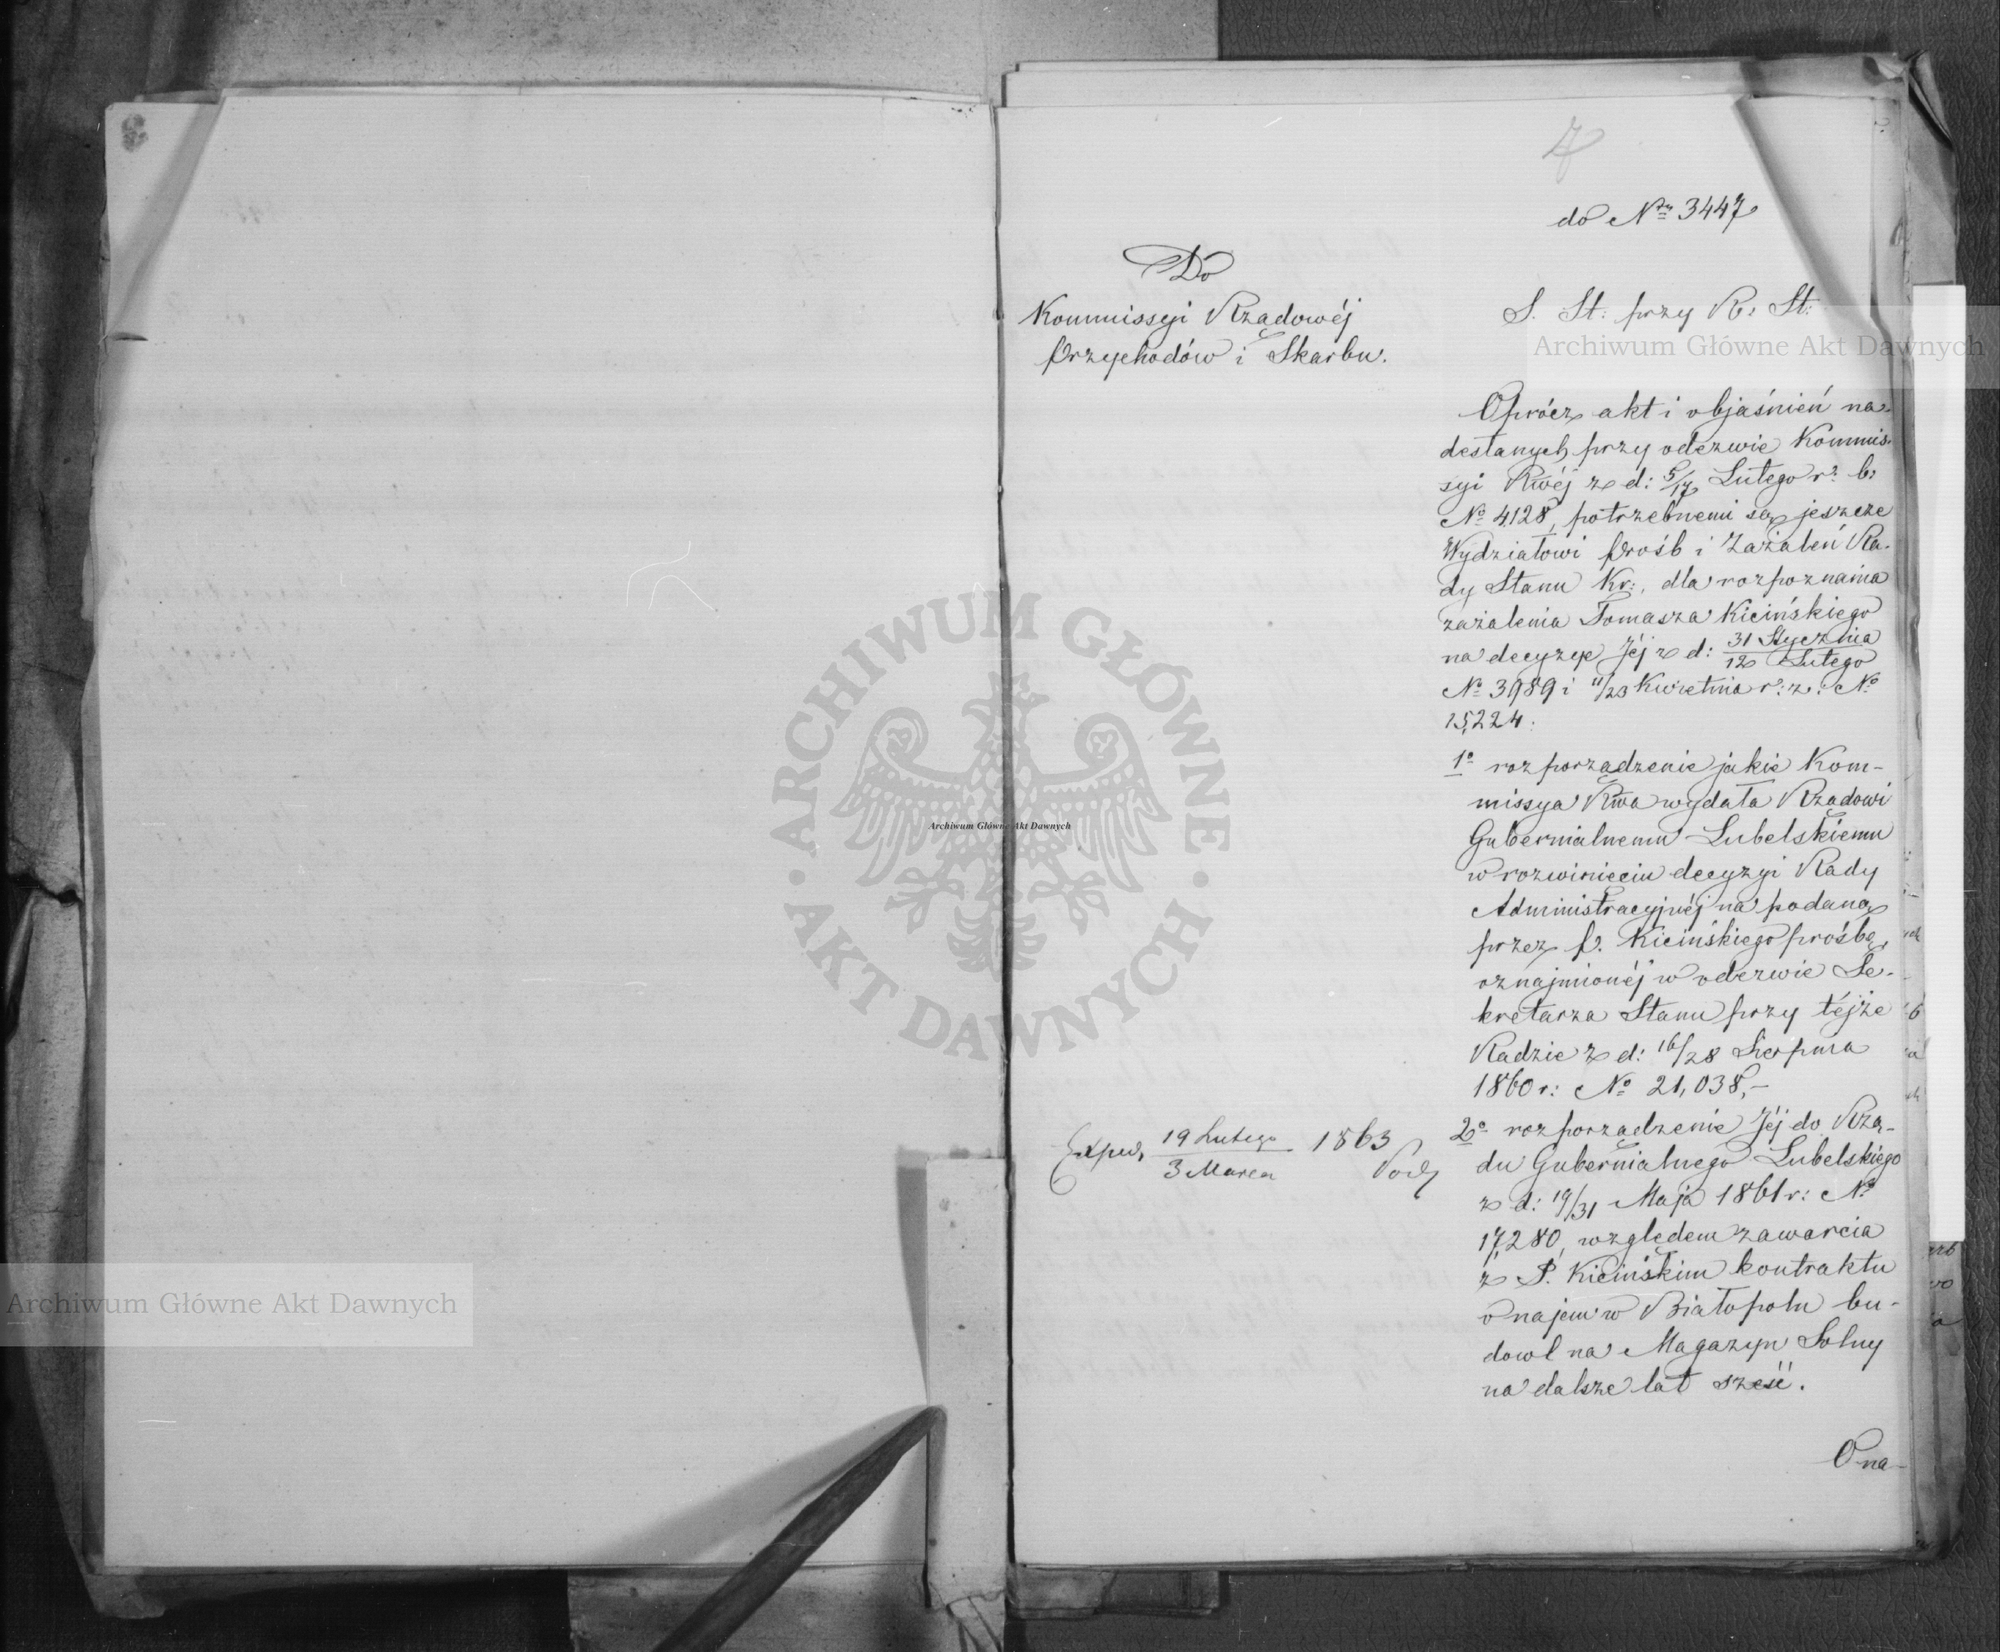 7
do Nru 3447
Do
Kommissyi Rządowéj
Przychodów i Skarbu.
S. St: przy R: St:
Oprócz akt i objaśnień na-
desłanych przy odezwie Kommis-
syi Rwéj z d: 5/17 Lutego r: b:
No 4128, potrzebnemi są jeszcze
Wydziałowi Prośb i Zażaleń Ra-
dy Stanu Kr:, dla rozpoznania
zażalenia Tomasza Kicińskiego
na decyzye Jéj z d: 31 Stycznia/12 Lutego
No 3989 i 11/23 Kwietnia r: z: No
15,224:
1o rozporządzenie jakie Kom-
missya Rwa wydała Rządowi
Gubernialnemu Lubelskiemu
w rozwinięciu decyzyi Rady
Administracyjnéj na podaną
przez P. Kicińskiego prośbę,
oznajmionéj w odezwie Se-
kretarza Stanu przy téjże
Radzie z d: 16/28 Sierpnia
1860 r: No 21,038,-
2o rozporządzenie Jéj do Rzą-
du Gubernialnego Lubelskiego
z d: 19/31 Maja 1861 r: No
17,280, względem zawarcia
z P. Kicińskim kontraktu
o najem w Białopolu bu-
dowl na Magazyn Solny
na dalsze lat sześć.
Exped. 19 Lutego/3 Marca 1863
O na-
Archiwum Główne Akt Dawnych
ARCHIWUM GŁÓWNE AKT DAWNYCH
Archiwum Główne Akt Dawnych
Archiwum Główne Akt Dawnych